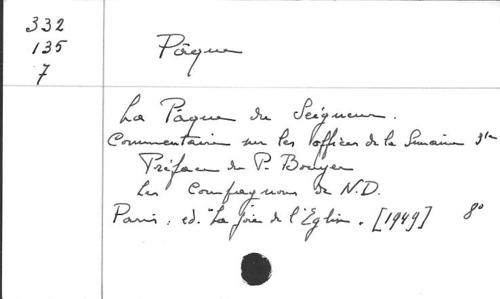 332
135
7
Pâque
La Pâque du Seigneur.
Commentaire sur les offices de la Semaine Ste
Préface du P. Bouyer
Les Compagnons de N.D.
Paris : ed. "La joie de l'Eglise. [1949] 8°